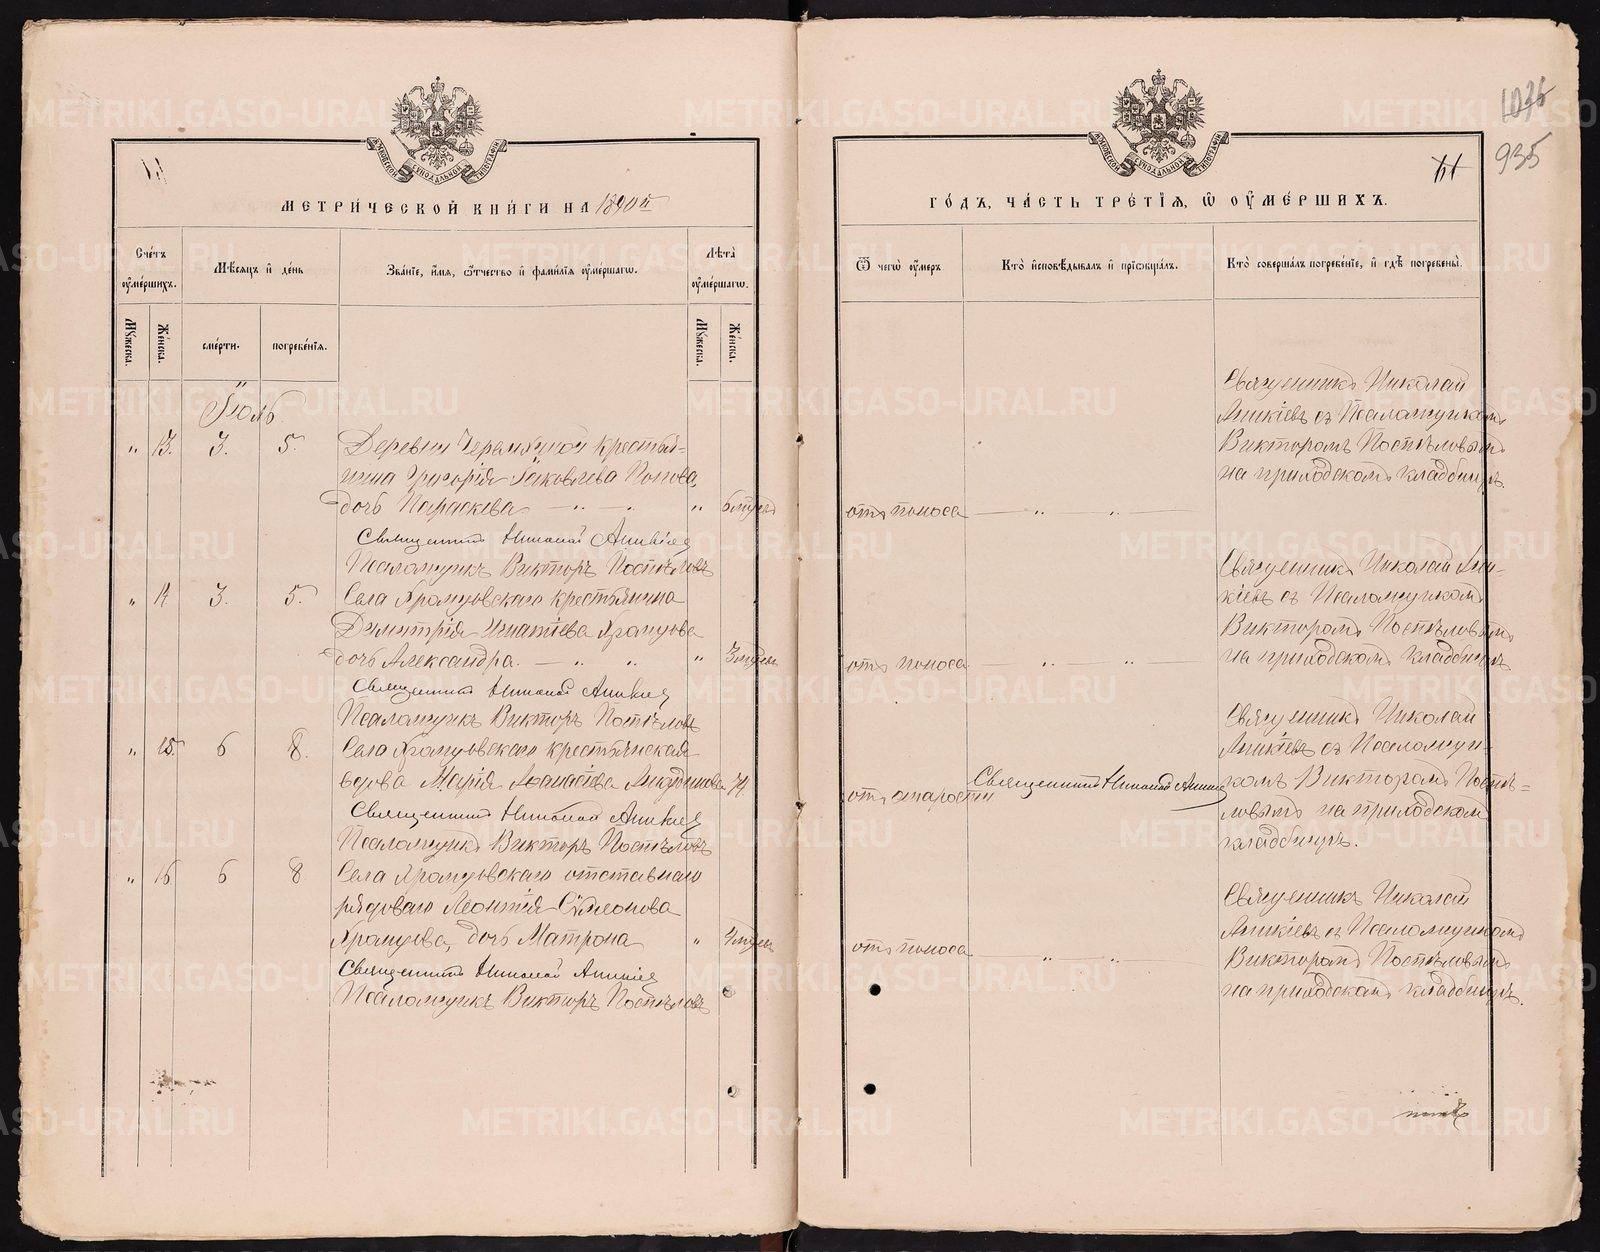 МЕТРИ́ЧЕСКОЙ КНИ́ГИ НА 1890й
Сче́тъ ᲂу҆ме́ршихъ.
Мѣ́сяцъ и҆ де́нь
Зва́нїе, и҆́мя, ѻ҆́тчество и҆ фами́лїя ᲂу҆ме́ршагѡ.
Лѣ́та ᲂу҆ме́ршагѡ.
Мꙋ́жеска.
Же́нска.
сме́рти.
погребе́нїя.
Мꙋ́жеска.
Же́нска.
Іюль
" 13. 3. 5. Деревни Черемхиной крестья-
нина Григорія Іаковлева Попова,
дочь Параскева — " — " "
Священникъ Николай Аникіев
Псаломщикъ Викторъ Поспѣловъ
" 14 3. 5. Села Храмцовскаго крестьянина
Димитрія Игнатіева Храмцова
дочь Александра. — " " " 3 недѣль
Священникъ Николай Аникіев
Псаломщикъ Викторъ Поспѣловъ
" 15. 6 8. Села Храмцовскаго крестьянская
вдова Марія Аѳанасіева
Священникъ Николай Аникіев
Псаломщикъ Викторъ Поспѣловъ
" 16 6 8 Села Храмцовскаго отставнаго
рядоваго Леонтія Сѵмеонова
Храмцова, дочь Матрона "
Священникъ Николай Аникіев
Псаломщикъ Викторъ Поспѣловъ
1076
935
11
ГО́ДЪ, ЧА́СТЬ ТРЕ́ТЇЯ, Ѡ҆ ОУ҆МЕ́РШИХЪ.
Ѿ чегѡ̀ ᲂу҆́меръ
Кто̀ и҆сповѣ́дывалъ и҆ прїѡбща́лъ.
Кто̀ соверша́лъ погребе́нїе, и҆ гдѣ̀ погребены̀.
Священникъ Николай
Аникіевъ съ Псаломщикомъ
Викторомъ Поспѣловымъ
на приходскомъ кладбищѣ.
отъ поноса — " — " —
Священникъ Николай Ани-
кіевъ съ Псаломщикомъ
Викторомъ Поспѣловымъ
на приходскомъ кладбищѣ
отъ поноса — " — " —
Священникъ Николай
Аникіевъ съ Псаломщи-
комъ Викторомъ Поспѣ-
ловымъ на приходскомъ
кладбищѣ.
отъ старости Священникъ Николай Аникіев
Священникъ Николай
Аникіевъ съ Псаломщикомъ
Викторомъ Поспѣловымъ
на приходскомъ кладбищѣ.
отъ поноса — " — " —
METRIKI.GASO-URAL.RU